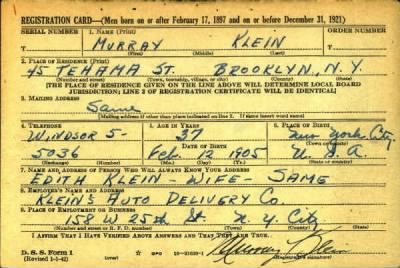 REGISTRATION CARD—(Men born on or after February 17, 1897 and on or before December 31, 1921)
SERIAL NUMBER
1. NAME (Print)
ORDER NUMBER
T
MURRAY KLEIN
T
(First) (Middle) (Last)
2. PLACE OF RESIDENCE (Print)
45 TEHAMA ST. BROOKLYN, N.Y.
(Number and street) (Town, township, village, or city) (County) (State)
[THE PLACE OF RESIDENCE GIVEN ON THE LINE ABOVE WILL DETERMINE LOCAL BOARD
JURISDICTION; LINE 2 OF REGISTRATION CERTIFICATE WILL BE IDENTICAL]
3. MAILING ADDRESS
Same
[Mailing address if other than place indicated on line 2. If same insert word same]
4. TELEPHONE
5. AGE IN YEARS
6. PLACE OF BIRTH
WINDSOR 5- 37 New York City
DATE OF BIRTH
(Town or county)
5036 Feb. 1905 U.S.A.
(Exchange) (Number) (Mo.) (Day) (Yr.) (State or country)
7. NAME AND ADDRESS OF PERSON WHO WILL ALWAYS KNOW YOUR ADDRESS
EDITH KLEIN - WIFE - SAME
8. EMPLOYER'S NAME AND ADDRESS
KLEIN'S AUTO DELIVERY CO.
9. PLACE OF EMPLOYMENT OR BUSINESS
158 W 25th St N.Y. City
(Number and street or R. F. D. number) (Town) (County) (State)
I AFFIRM THAT I HAVE VERIFIED ABOVE ANSWERS AND THAT THEY ARE TRUE.
D. S. S. Form 1
(Revised 1-1-42)
GPO
Murray Klein
(Registrant's signature)